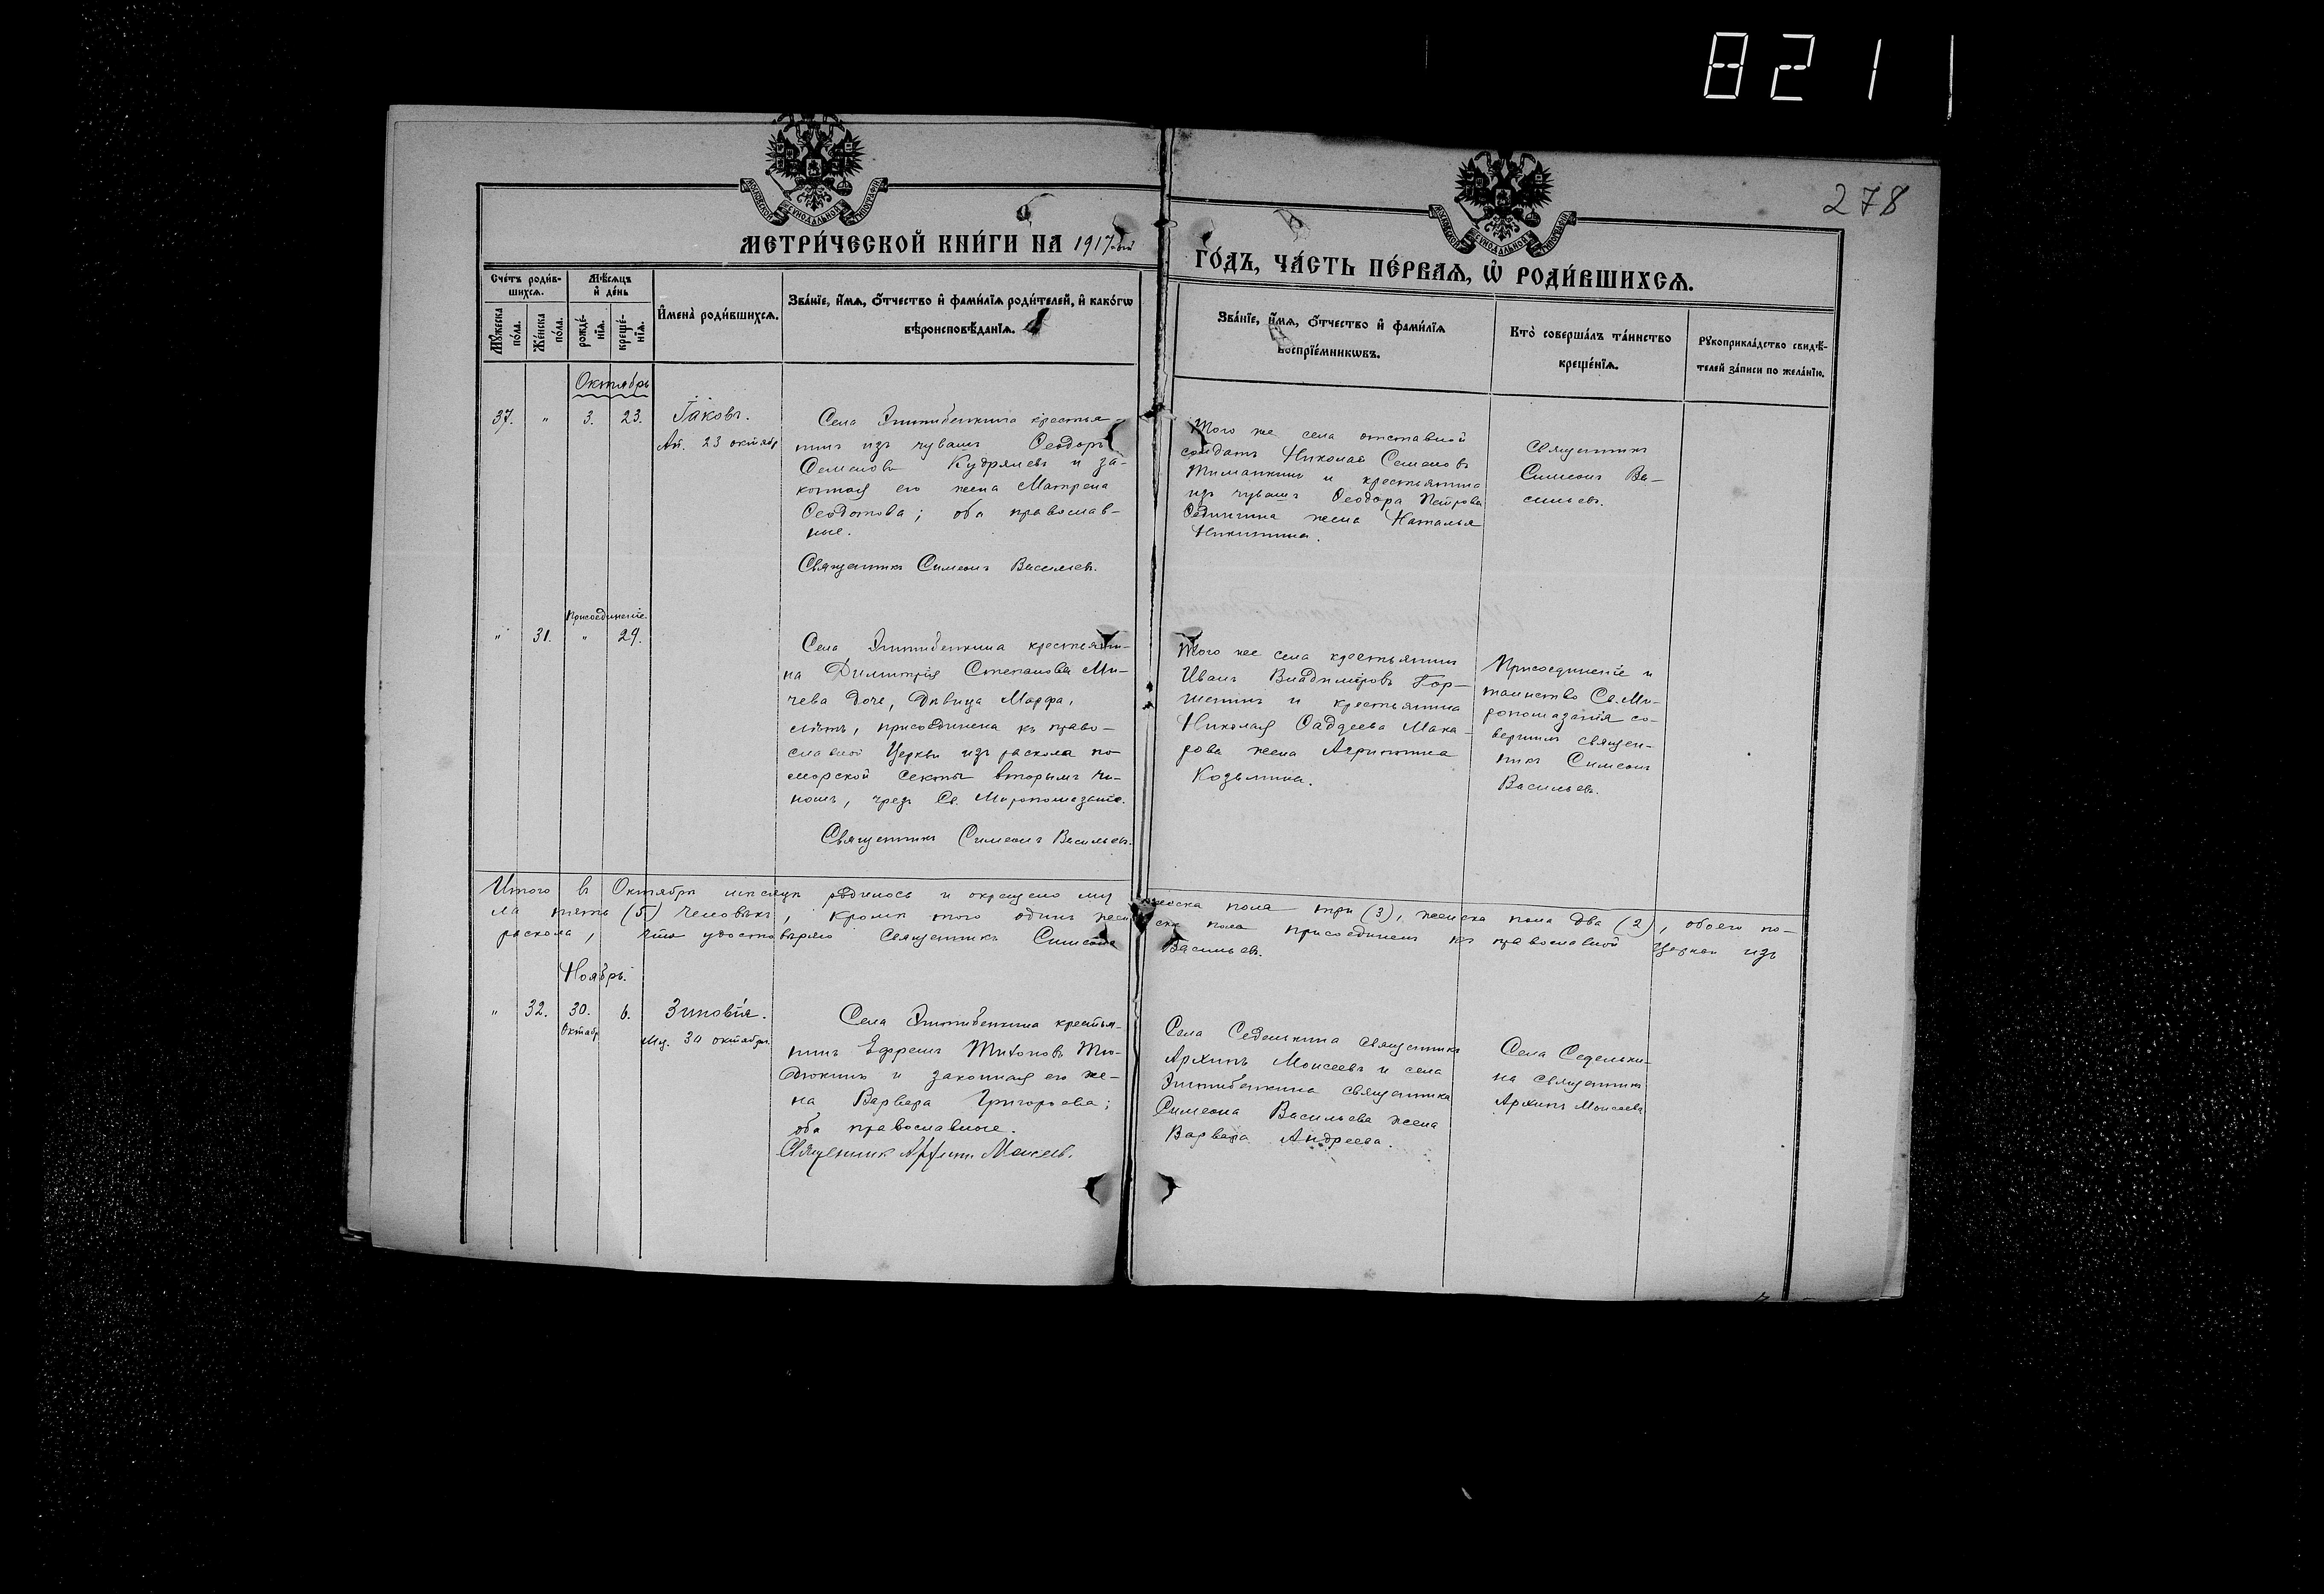 821
278
МОСКОВСКОЙ СѴНОДАЛЬНОЙ ТИПОГРАФІИ
МОСКОВСКОЙ СѴНОДАЛЬНОЙ ТИПОГРАФІИ
МЕТРИ́ЧЕСКОЙ КНИ́ГИ НА 1917-ый
ГО́ДЪ, ЧА́СТЬ ПЕ́РВАѦ, Ѽ РОДИ́ВШИХСѦ.
Сче́тъ роди́в-
шихсѧ.
Мѣ́сѧцъ
и҆ де́нь
Мꙋ́жеска
по́ла.
Же́нска
по́ла.
рожде́-
нїѧ.
креще́-
нїѧ.
И҆мена̀ роди́вшихсѧ.
Зва́нїе, и҆́мѧ, ѻ҆́тчество и҆ фами́лїѧ роди́телей, и҆ како́гѡ
вѣроисповѣ́данїѧ.
Зва́нїе, и҆́мѧ, ѻ҆́тчество и҆ фами́лїѧ
воспрїе́мникѡвъ.
Кто̀ соверша́лъ та́инство
креще́нїѧ.
Рꙋкоприкла́дство свидѣ́-
телей за́писи по жела́нїю.
Октябрь
37. " 3. 23. Іаковъ.
Ап. 23 октябр.
Села крестья-
нинъ изъ чувашъ Ѳеодоръ
Семеновъ Кудряшевъ и за-
конная его жена Матрена
Ѳеодотова; оба православ-
ные.
Священникъ Симеонъ Васильевъ.
Того же села отставной
солдатъ Николай Семеновъ
и крестьянина
изъ чувашъ Ѳеодора Петрова
жена Наталья
Никитина.
Священникъ
Симеонъ Ва-
сильевъ.
Присоединеніе.
" 31. " 29.
Села крестьяни-
на Димитрія Степанова Ми-
чева дочь, дѣвица Марфа,
лѣтъ, присоединена къ право-
славной Церкви изъ раскола по-
морской секты вторымъ чи-
номъ, чрезъ Св. Миропомазаніе.
Священникъ Симеонъ Васильевъ.
Того же села крестьянинъ
Иванъ Владиміровъ Гор-
шенинъ и крестьянина
Николая Ѳаддеева Мака-
рова жена Агрипина
Козьмина.
Присоединеніе и
таинство Св. Ми-
ропомазанія со-
вершилъ священ-
никъ Симеонъ
Васильевъ.
Итого въ Октябрѣ мѣсяцѣ родилось и окрещено мужеска пола три (3), женска пола два (2), обоего по-
ла пять (5) человѣкъ, кромѣ того одинъ женска пола присоединенъ къ православной Церкви изъ
раскола, что удостовѣряю Священникъ Симеонъ Васильевъ.
Ноябрь.
" 32. 30. 6. Зиновія.
Октябр. Мц. 30 октября.
Села крестья-
нинъ Ефремъ Тихоновъ Тю-
и законная его же-
на Варвара Григорьева;
оба православные.
Священник Архипъ Моисеев.
Села Седелькина священникъ
Архипъ Моисеевъ и села
священника
Симеона Васильева жена
Варвара Андреева.
Села Седельки-
на священникъ
Архипъ Моисеевъ